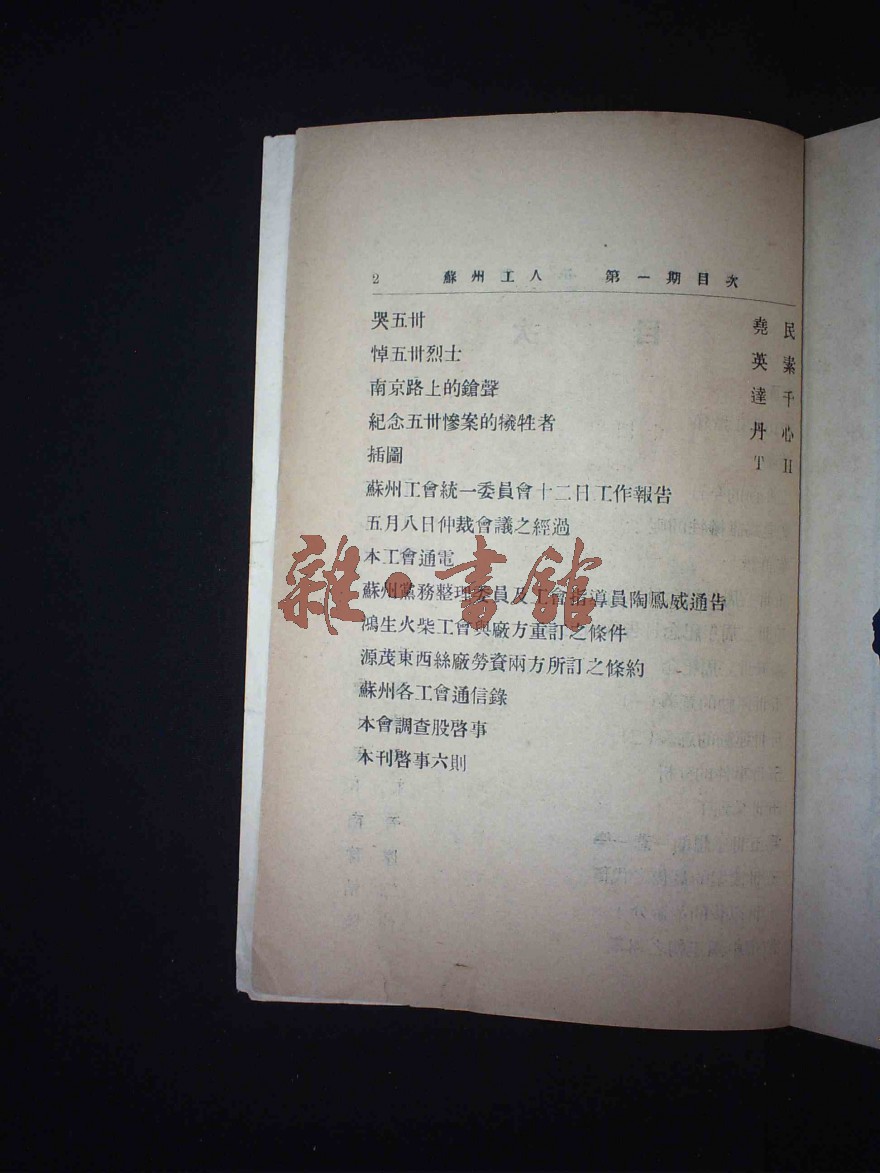 2 蘇州工人 第一期目次
哭五卅 堯民
悼五卅烈士 英素
南京路上的鎗聲 達千
紀念五卅慘案的犧牲者 丹心
插圖 T H
蘇州工會統一委員會十二日工作報告
五月八日仲裁會議之經過
本工會通電
蘇州黨務整理委員及工會指導員陶鳳威通告
鴻生火柴工會與廠方重訂之條件
源茂東西絲廠勞資兩方所訂之條約
蘇州各工會通信錄
本會調查股啓事
本刊啓事六則
雜·書館